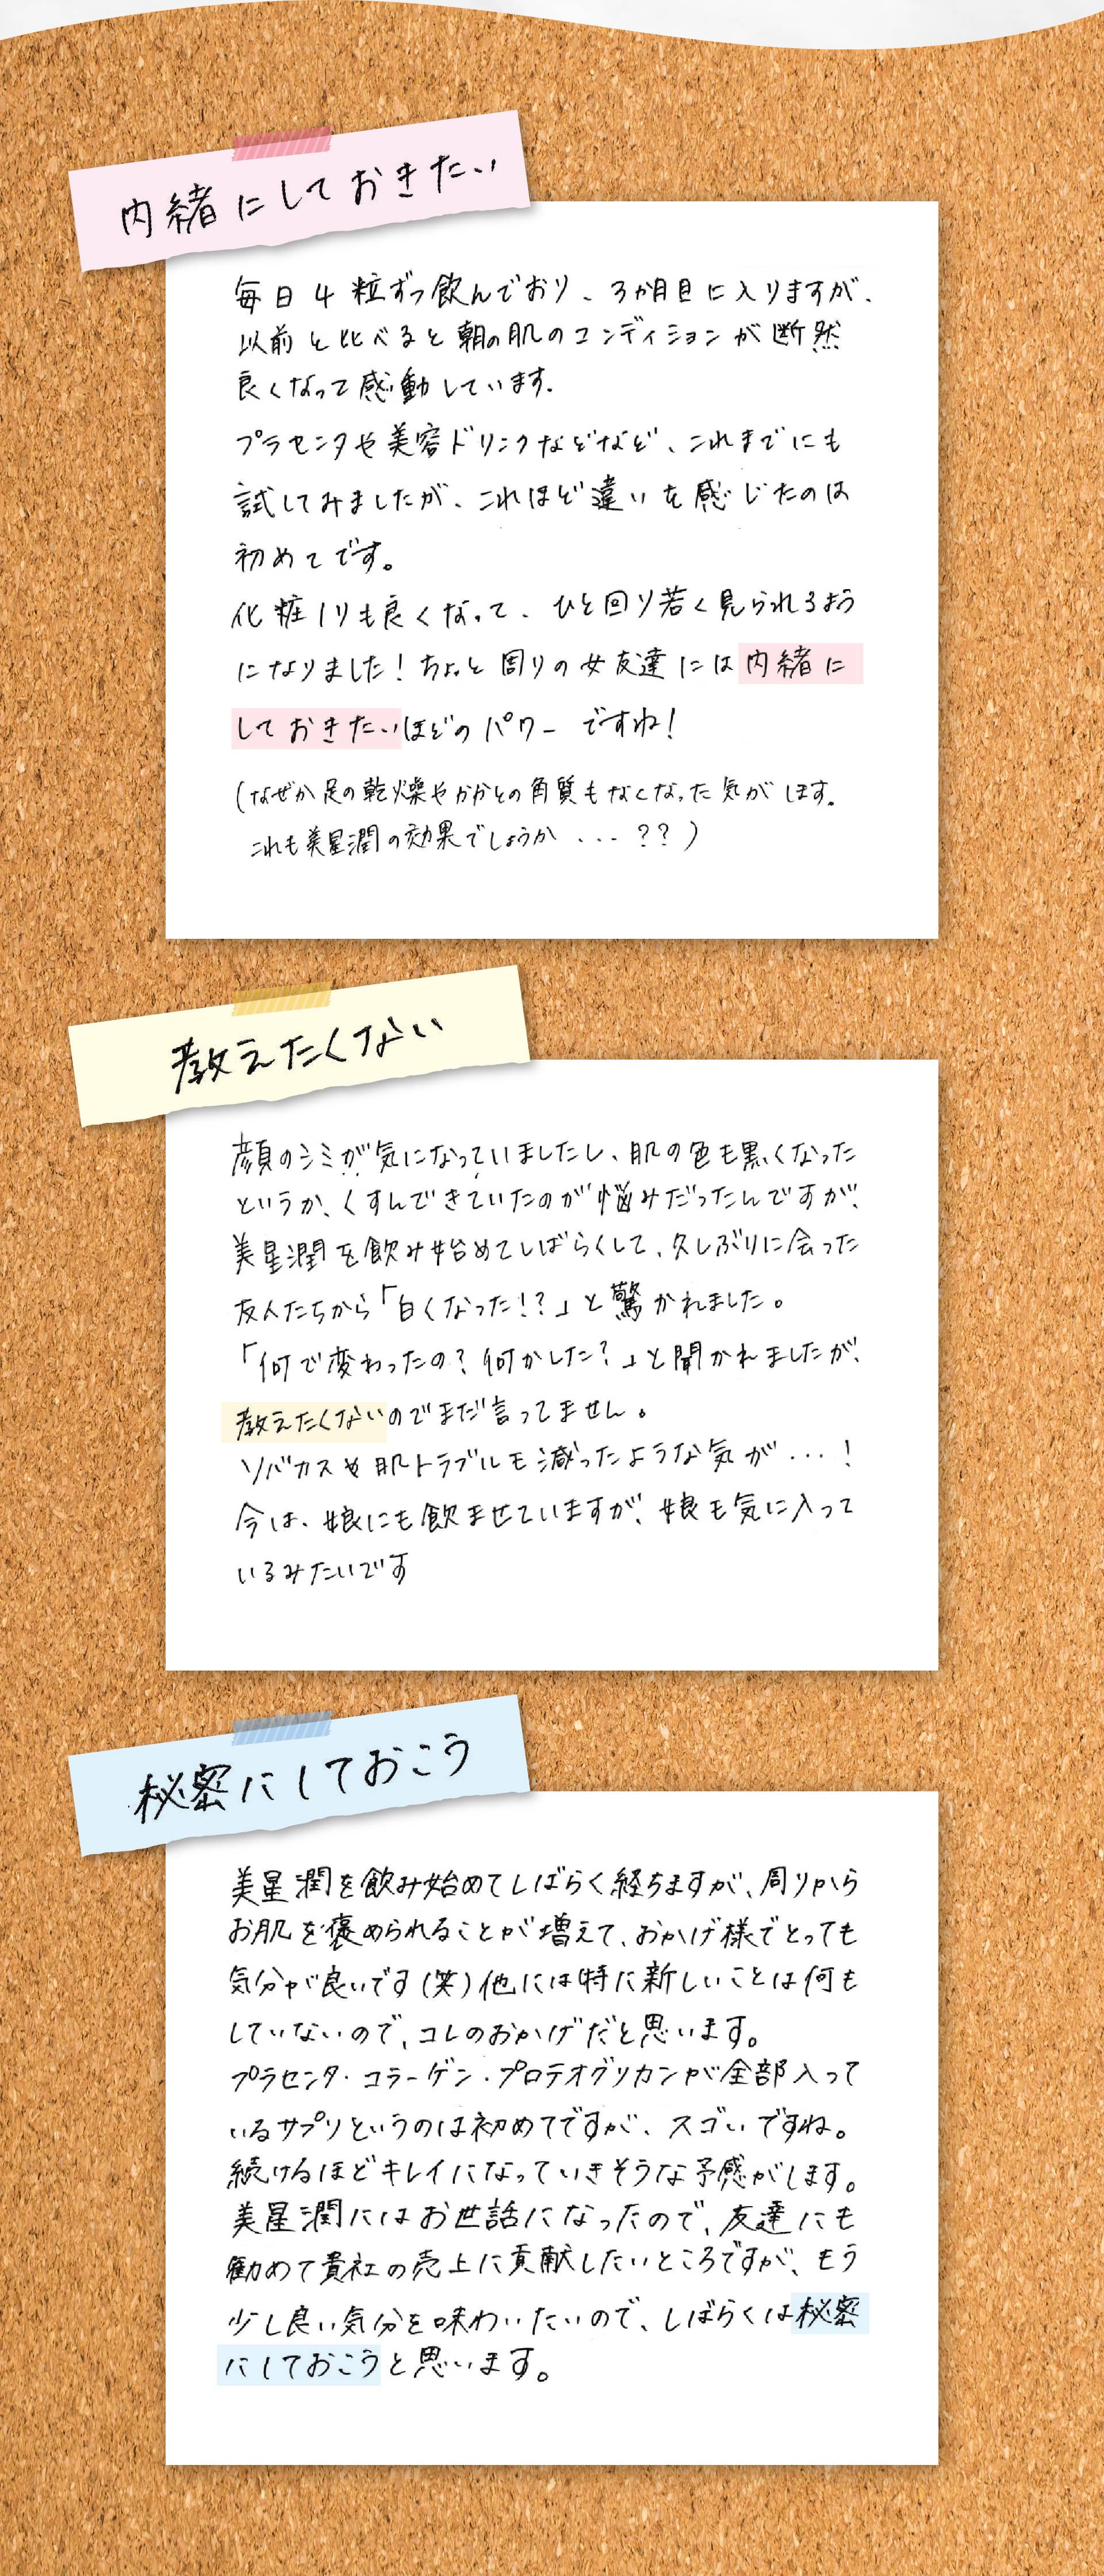 内緒にしておきたい
毎日4粒ずつ飲んでおり、3か月目に入りますが、
以前と比べると朝の肌のコンディションが断然
良くなって感動しています。
プラセンタや美容ドリンクなどなど、これまでにも
試してみましたが、これほど違いを感じたのは
初めてです。
化粧ノリも良くなって、ひと回り若く見られるよう
になりました!ちょっと周りの女友達には内緒に
しておきたいほどのパワーですね!
(なぜか足の乾燥やかかとの角質もなくなった気がします。
これも美星潤の効果でしょうか...??)
教えたくない
顔のシミが気になっていましたし、肌の色も黒くなった
というか、くすんできていたのが悩みだったんですが、
美星潤を飲み始めてしばらくして、久しぶりに会った
友人たちから「白くなった!?」と驚かれました。
「何で変わったの?何かした?」と聞かれましたが、
教えたくないのでまだ言ってません。
ソバカスや肌トラブルも減ったような気が...!
今は、娘にも飲ませていますが、娘も気に入って
いるみたいです
秘密にしておこう
美星潤を飲み始めてしばらく経ちますが、周りから
お肌を褒められることが増えて、おかげ様でとっても
気分が良いです(笑)他には特に新しいことは何も
していないので、コレのおかげだと思います。
プラセンタ・コラーゲン・プロテオグリカンが全部入って
いるサプリというのは初めてですが、スゴいですね。
続けるほどキレイになっていきそうな予感がします。
美星潤にはお世話になったので、友達にも
勧めて貴社の売上に貢献したいところですが、もう
少し良い気分を味わいたいので、しばらくは秘密
にしておこうと思います。